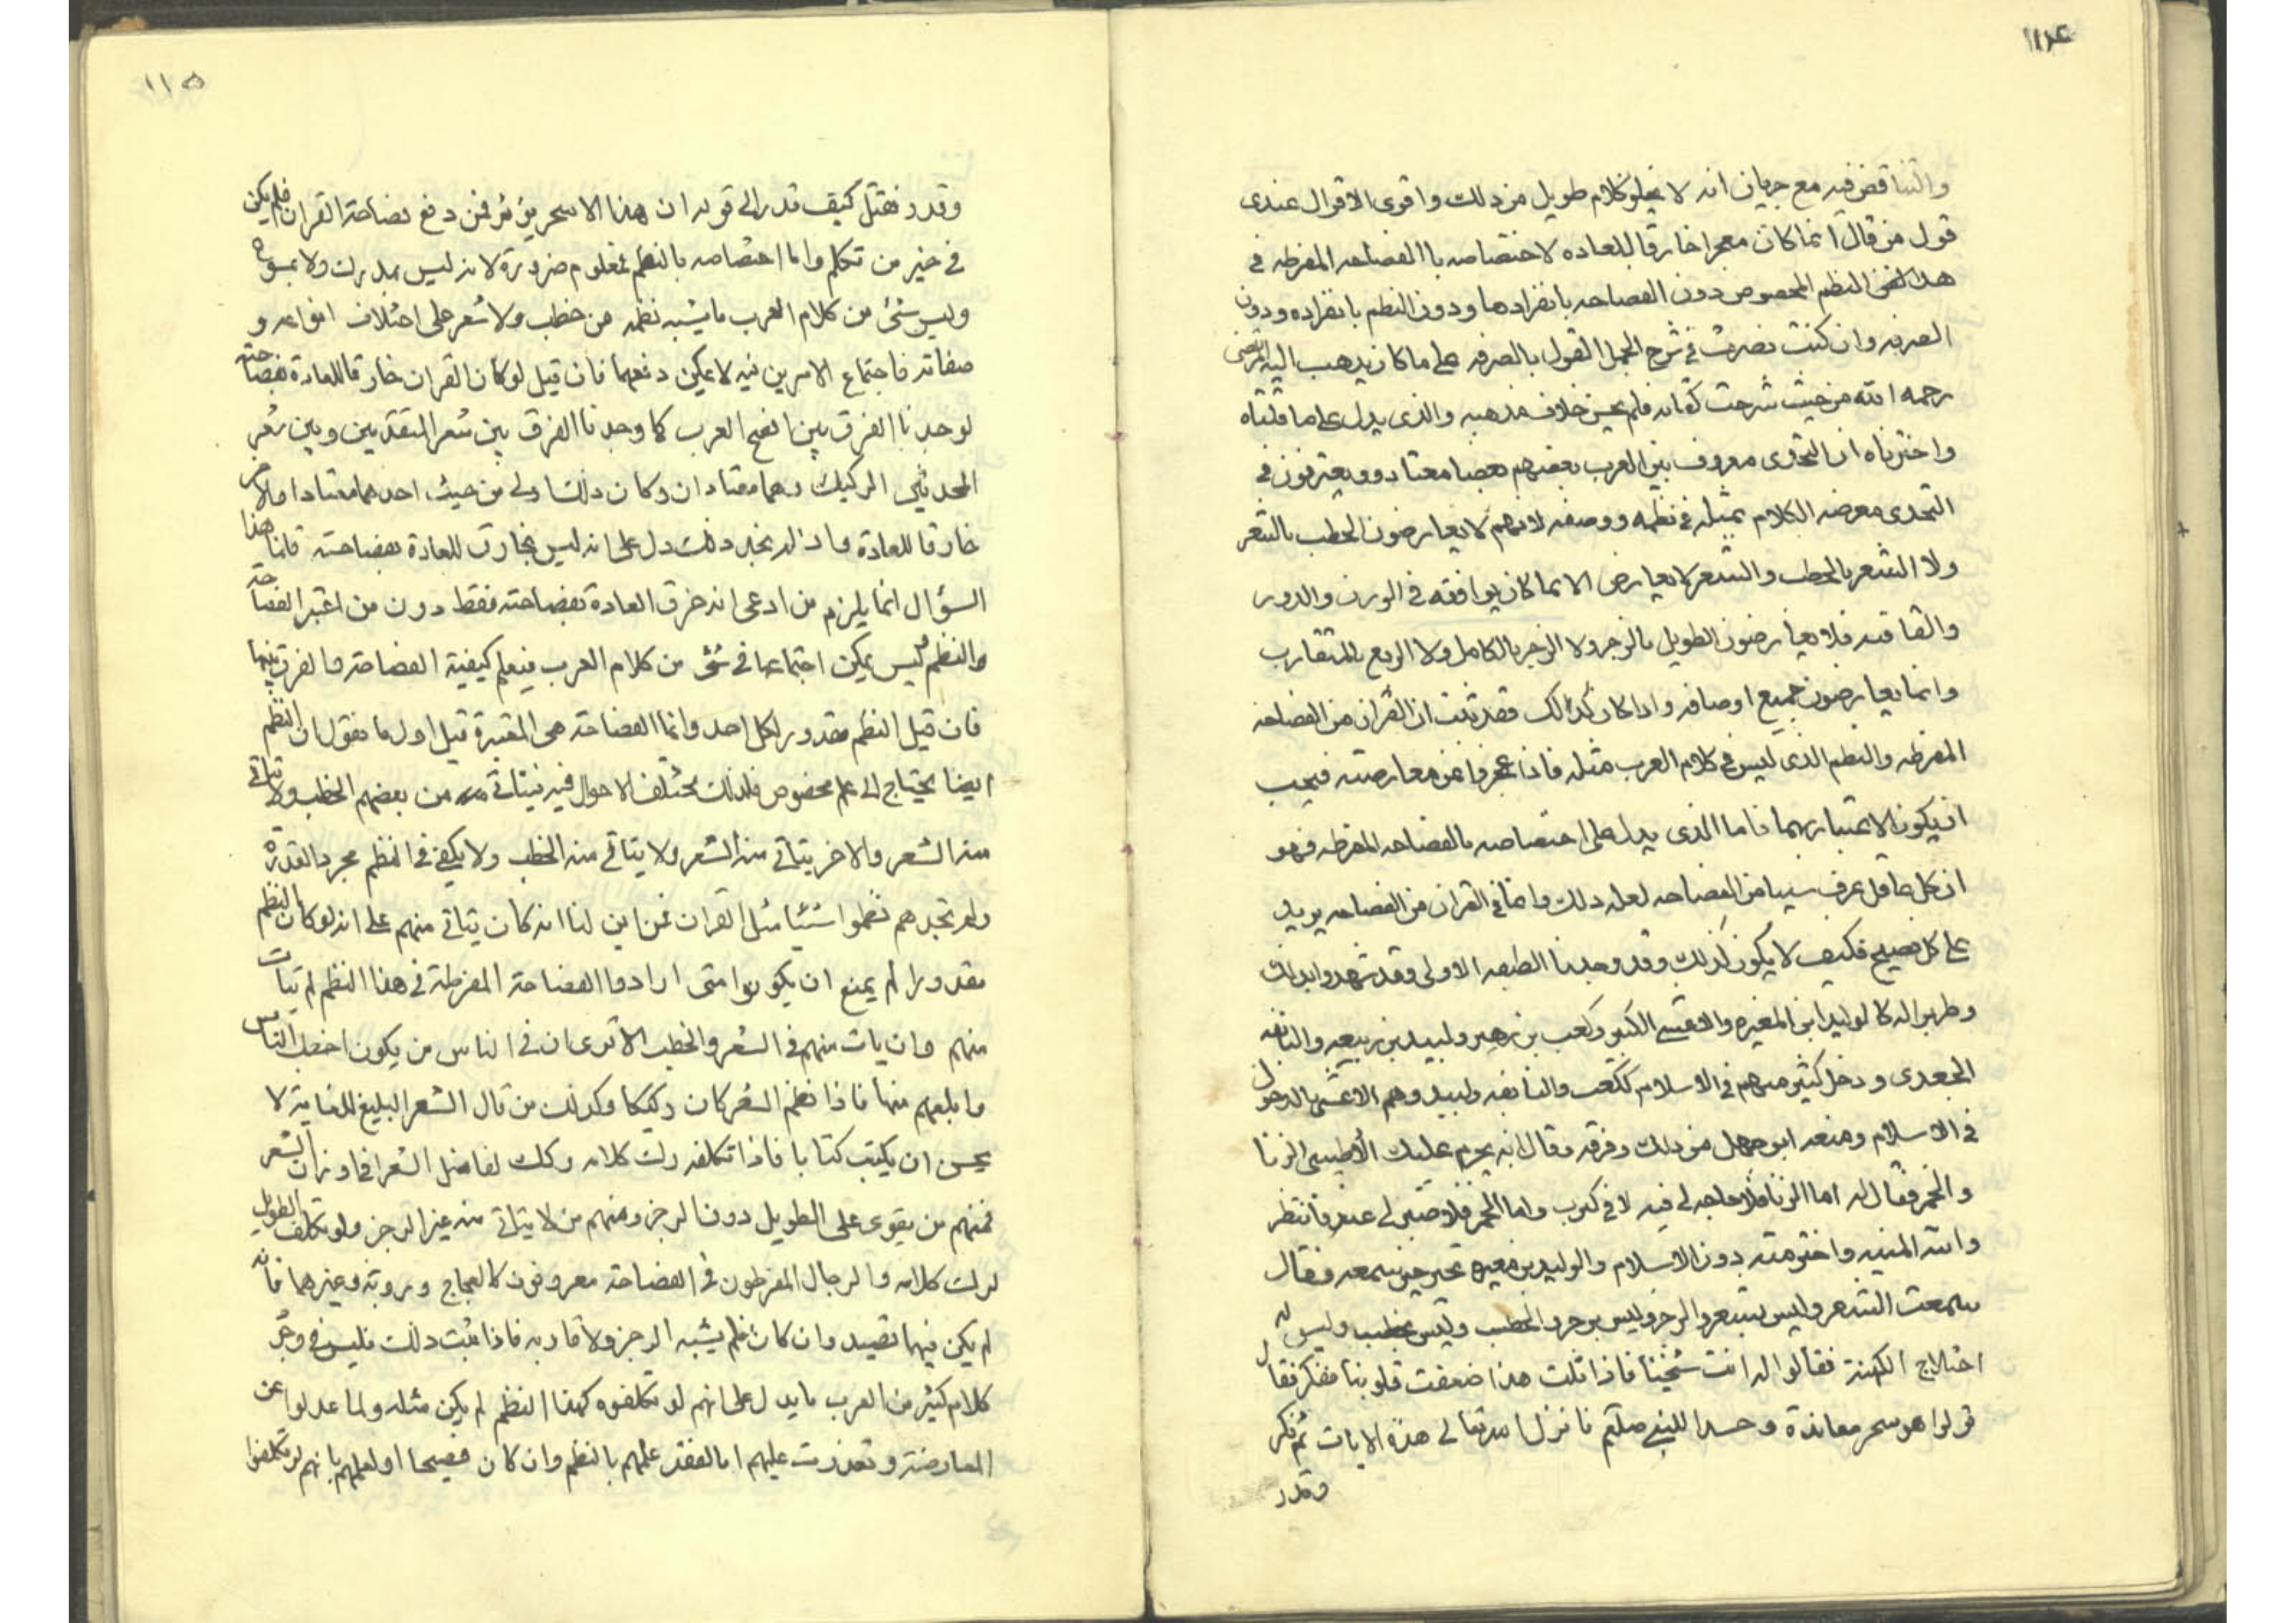 ١١٤
والتناقض فيه مع جريان انه لا يخلو كلام طويل من ذلك واقوى الاقوال عندى
قول من قال انما كان معجزا خارقا للعاده لاختصاصه باالفصاحه المفرطه فى
هذا النظم المخصوص دون الفصاحه بانفرادها ودون النظم بانفراده ودون
الصرفه وان كنت نصرت فى شرح الجمل القول بالصرفه على ما كان يذهب اليه المرتضى
رحمه الله من حيث شرحت كتابه فلم يحسن خلاف مذهبه والذى يدل على ما قلناه
واخترناه ان التحدى معروف بين العرب بعضهم بعضا معتاد ويعترفون فى
التحدى معارضه الكلام بمثله فى نظمه ووصفه لانهم لا يعارضون الخطب بالشعر
ولا الشعر بالخطب والشعر لا يعارض الا بما كان يوافقه فى الوزن والدور
والقافيه فلا يعارضون الطويل بالرجز ولا الرجز بالكامل ولا السريع بالمتقارب
وانما يعارضون جميع اوصافه واذا كان كذالك فقد ثبت ان القران من الفصاحه
المفرطه والنظم الذى ليس فى كلام العرب مثله فاذا عجزوا عن معارضته فيجب
ان يكون الاعتبار بهما فاما الذى يدل على اختصاصه بالفصاحه المفرطه فهو
ان كل عاقل عرف شيا من الفصاحه لعله ذلك وانما فى القران من الفصاحه يزيد
على كل فصيح فكيف لا يكون كذلك وقد وجدنا الطبقه الاولى وقد شهدوا بذلك
وطربوا له كالوليد ابن المغيره والاعشى الكبير وكعب بن زهير ولبيد بن ربيعه والنابغه
الجعدى ودخل كثير منهم فى الاسلام ككعب والنابغه ولبيد وهم الاعشى بالدخول
فى الاسلام ومنعه ابو جهل من ذلك وفزعه وقال انه يحرم عليك الأطيبين الزنا
والخمر فقال له اما الزنا فلا حاجه لى فيه لانى كبرت واما الخمر فلا صبر لى عنه وانتظر
واتته المنيه واخترمته دون الاسلام والوليد بن مغيره تحير حين سمعه فقال
سمعت الشعر وليس بشعر والرجز وليس برجز والخطب وليس بخطب وليس له
اختلاج الكهنة فقالوا له انت شيخنا فاذا قلت هذا ضعفت قلوبنا ففكر فقال
قولوا هو سحر معاندة وحسدا للنبى صلعم فانزل الله تعالى هذه الايات ثم فكر
وقدر
١١٥
وقدر فقتل كيف قدر الى قوله ان هذا الا سحر يؤثر فمن دفع فصاحة القران فلم يكن
فى خير من تكلم واما اختصاصه بالنظم فمعلوم ضرورة لانه ليس بمدرك ولا بمسموع
وليس شئ من كلام العرب ما يشبه نظمه من خطب ولا شعر على اختلاف انواعه و
صفاته فاجتماع الامرين فيه لا يمكن دفعهما فان قيل لو كان القران خارقا للعادة بفصاحته
لوجدنا الفرق بين افصح العرب كما وجدنا الفرق بين شعر المتقدمين وبين شعر
المحدثين الركيك وهما معتادان وكان ذلك اولى من حيث احدهما معتادا والاخر
خارقا للعادة واذا لم نجد ذلك دل على انه ليس بخارق للعادة بفصاحته قلنا هذا
السؤال انما يلزم من ادعى انه خرق العادة بفصاحته فقط دون من اعتبر الفصاحة
والنظم وليس يمكن اجتماعهما فى شئ من كلام العرب فيعلم كيفية الفصاحة والفرق بينهما
فان قيل النظم مقدور لكل احد وانما الفصاحة هى المعتبرة قيل اول ما نقول ان النظم
ايضا يحتاج الى علم مخصوص فلذلك يختلف الاحوال فيه فيتاتى من بعضهم الخطب ولا يتاتى
منه الشعر والاخر يتاتى منه الشعر ولا يتاتى منه الخطب ولا يكفى فى النظم مجرد القدرة
ولم نجدهم نظموا شيئا مثل القران فمن اين لنا انه كان يتاتى منهم على انه لو كان النظم
مقدورا لم يمنع ان يكونوا متى ارادوا الفصاحة المفرطة فى هذا النظم لم يتات
منهم وان يات منهم فى الشعر والخطب الا ترى ان فى الناس من يكون اخطب الناس
وابلغهم منها فاذا نظم الشعر كان ركيكا وكذلك من قال الشعر البليغ للغاية لا
يحسن ان يكتب كتابا فاذا تكلفه رك كلامه وكك تفاضل الشعرا فى اوزان الشعر
فمنهم من يقوى على الطويل دون الرجز ومنهم من لا يتاتى منه غير الرجز ولو تكلف الطويل
لرك كلامه والرجال المفرطون فى الفصاحة معروفون كالعجاج وروبة وغيرهما فانه
لم يكن فيهما قصيد وان كان فلم يشبه الرجز ولا قاربه فاذا ثبت ذلك فليس فى وجود
كلام كثير من العرب ما يدل على انهم لو تكلفوه كهذا النظم لم يكن مثله ولما عدلوا عن
المعارضة وتعذرت عليهم اما لفقد علمهم بالنظم وان كان فصيحا او لعلمهم بانهم لو تكلفوا